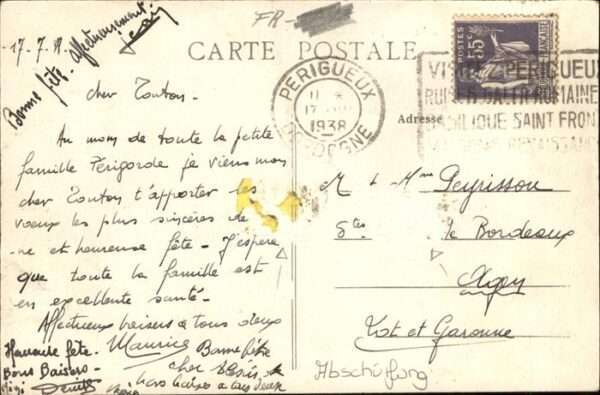 FR-
CARTE POSTALE
17.7.38.
Bonne fête affectueusement.
POSTES
55c
PÉRIGUEUX
17
1938
DORDOGNE
VISITEZ PÉRIGUEUX
RUINES GALLO-ROMAINES
BASILIQUE SAINT FRONT
Adresse
cher Tonton.
Au nom de toute la petite
famille Périgorde je viens mon
cher Tonton t'apporter les
voeux les plus sincères de
ne et heureuse fête - J'espère
que toute la famille est
en excellente santé -
Affectueux baisers à tous deux
Maurice
Heureuse fête.
Bons Baisers -
Gigi Denise
Bonne fête
cher
bons baisers à tous deux
M & Mme Peyrissou
Ste de Bordeaux
Agen
Lot et Garonne
Abschürfung